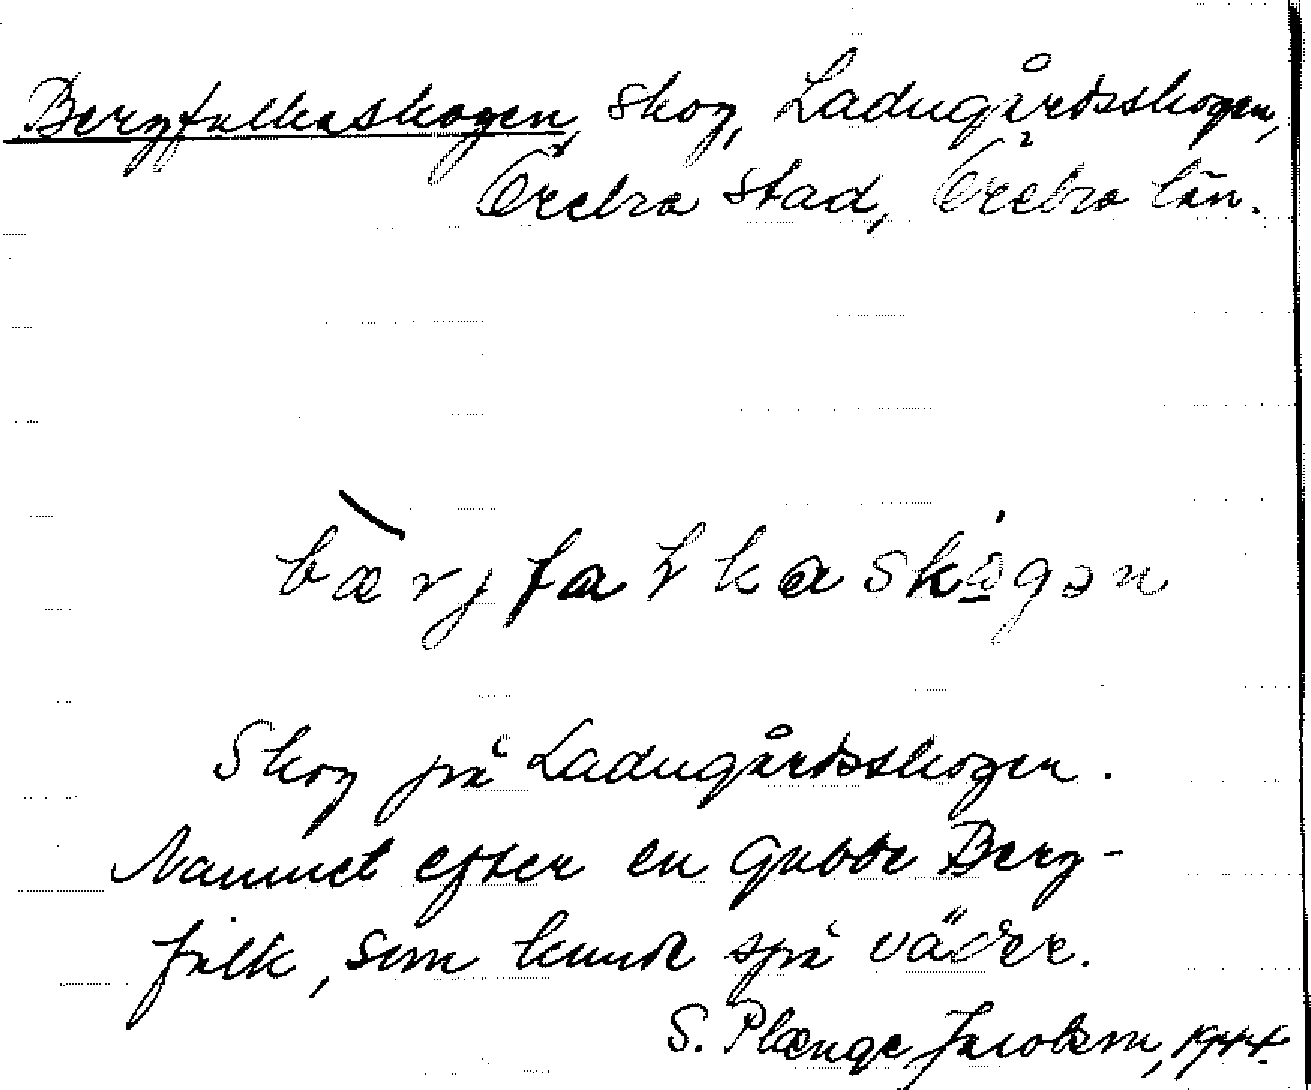 Bergfalkaskogen, skog, Ladugårdsskogen,
Örebro stad, Örebro län.
bærjfalkaskogən
Skog på Ladugårdsskogen.
Namnet efter en gubbe Berg-
falk, som kunde spå väder.
S. Plænge Jacobson, 1944.